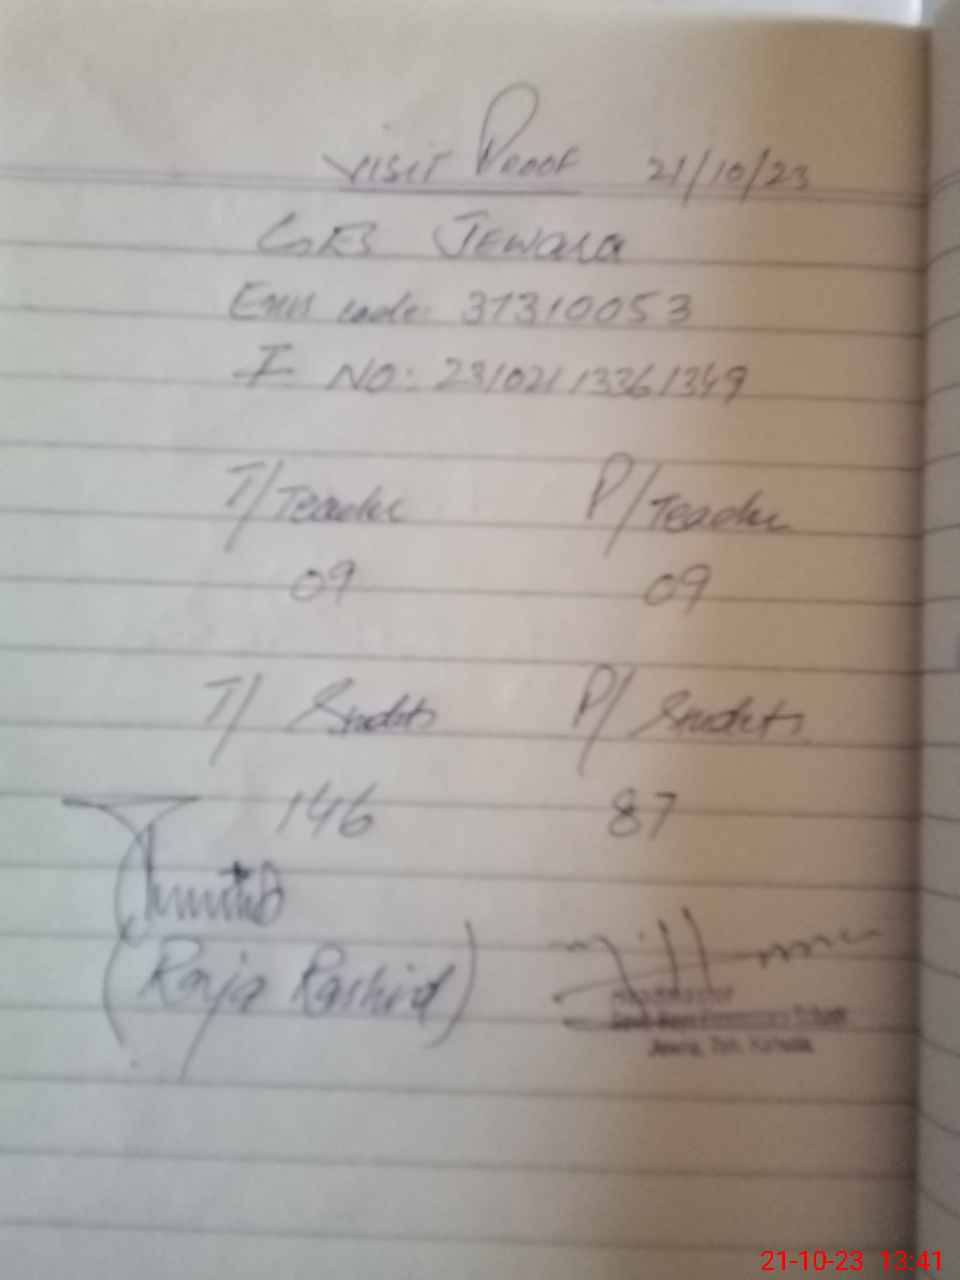 Visit Proof 21/10/23
GES Jewara
Emis code: 37310053
I NO: 23102113361349
T/Teacher P/Teacher
09 09
T/ Students P/ Students
146 87
(Raja Rashid)
Headmaster
21-10-23 13:41